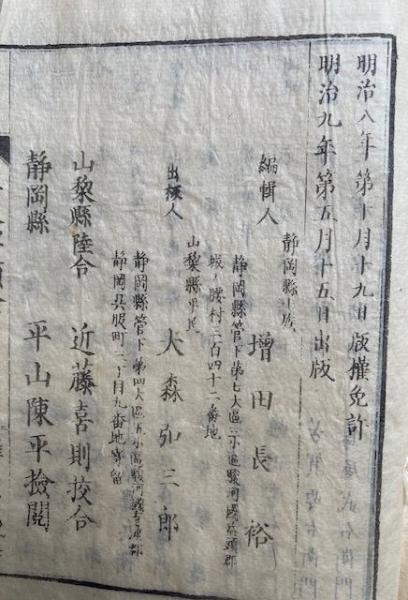 明治八年第十月十九日版權免許
明治九年第五月十五日出版
靜岡縣士族
編輯人 增田長裕
靜岡縣管下第七大區三小區駿河國益頭郡
城ノ腰村三百四十二番地
山梨縣平民
出板人 大森弘三郎
靜岡縣管下第四大區五小區駿河國有渡郡
靜岡呉服町二丁目九番地寄留
山梨縣陸合 近藤喜則挍合
靜岡縣 平山陳平撿閲